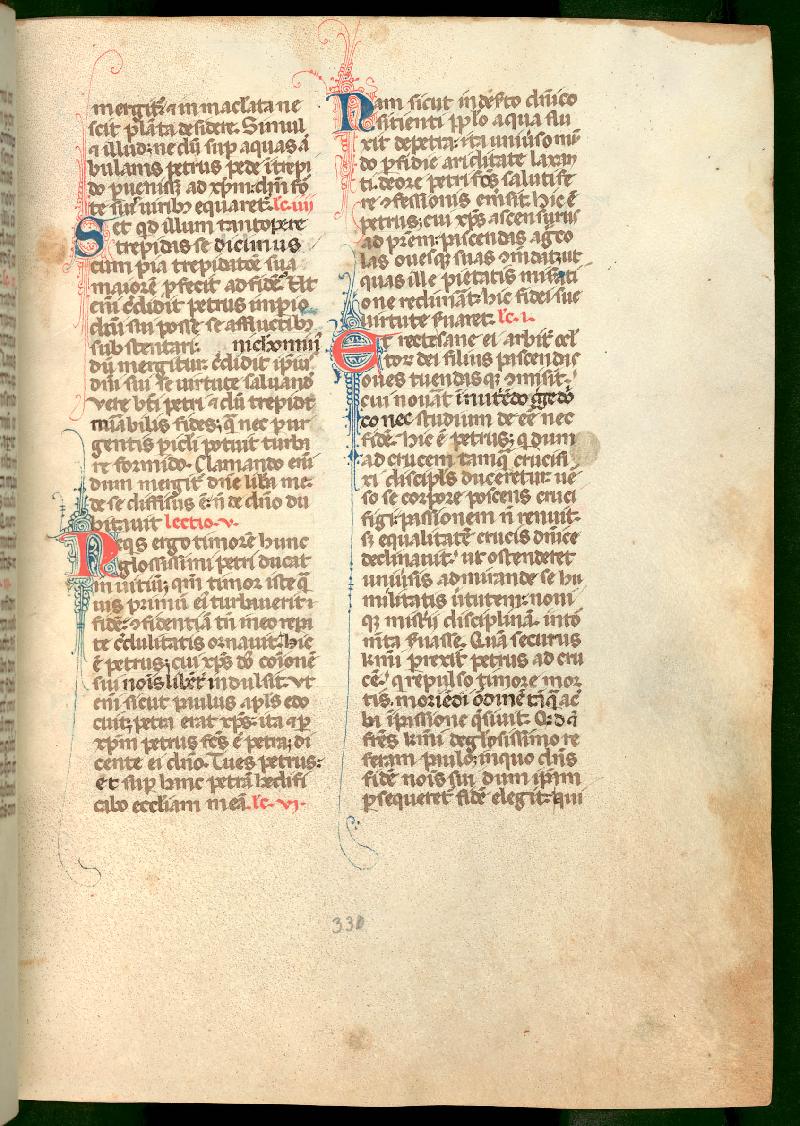 mergit᷑ ⁊ in maclata ne
scit pla᷑ta desidere. Simul
⁊ illud: ne dū sup aquas ā
bulans petrus pede ītrepi
do puenisꝫ ad xp̄m: dm̄ fō
te sui uirib; equaret: lc. iiii
Set qd illum tantopere
trepidas se dicimus
cum pia trepidatōe sua
maiorē pfecit ad fidē. Et
cm̄ c̄didit petrus impio
dn̄i sui posse se a fluctib;
substentari: nichomin;
dū mergitur. c̄didit ipiu
dn̄i sui se uirtute saluand
vere bt̄i petri ⁊ cū trepidat
mīabilis fides; q̄ nec pur
gentis picli potuit turbi
re formido. Clamando eni
dum mergit᷑ dn̄e lib̄a me:
de se diffisus ē: n̄ de dn̄o du
bitauit lectio. v.
Neqs ergo timorē hunc
gl̄osissimi petri ducat
in uitiū; qm̄ timor iste q̄
uis primū ei turbauerit
fidē: ⁊ fidentiā tn̄ meo repi
te c̄dulitatis ornauit. hic
ē petrus; cui xp̄s dō coīonē
sui noīs libēt indulsit. vt
em̄ sicut paulus apl̄s edo
cuit; petra erat xp̄s: ita ⁊ p
xp̄m petrus fc̄s ē petra; di
cente ei dn̄o. Tu es petrus:
et sup hanc petrā hedifi
cabo eccl̄iam meā. lc. vi.
Nam sicut in deſto dn̄ico
sitienti pplo aqua flu
xit de petra: ita uniuſo mū
do pfidie ariditate laxan
ti. de ore petri fōs salutife
re ⁊fessionis emisit. hic ē
petrus; cui xp̄s ascensurus
ad pr̄em: pascendas agco
las ouesque suas ꝯmdatuit
quas ille pietatis misati
one redimāt: hic fidei sue
uirtute ſuaret. lc. i.
Et recte sane ei arbit᷑ cel
tor dei filius pascendis
oues tuendasqꝫ ꝯmisit.
cui nouat in medo gꝫedō
co nec studium de eē nec
fidē. hic ē petrus; q dum
ad crucem tamqꝫ crucifi
xi discipls duceretur: ue
so se corpore poscens cruci
figi: passionem n̄ renuit:
sꝫ equalitatē crucis dn̄ice
declinauit: ut ostenderet
uniuſis admirande se hu
militatis uirtutem: nomi
qꝫ mistij disciplinā. intō
mīta ſuasse. Quā securus
kmi prexit petrus ad cru
cē: q repulso timore mor
tis. moriēdi ōdinē tāq̄ ac
bi ī passione q̄siuit. Qd a
frēs kmi de gl̄osissimo re
feram paulo; in quo dn̄s
fidē nois sui dum ipm̄
psequeret᷑ fidē elegit: qui
330